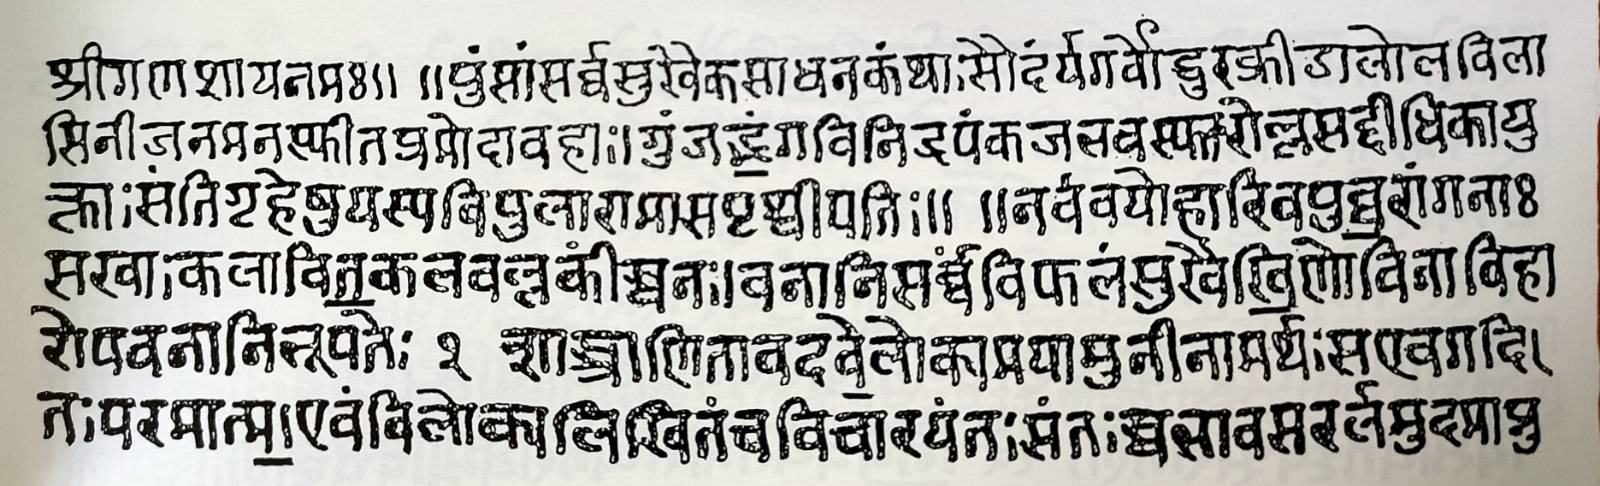 श्रीगणशायनमः॥ ॥पुंसांसर्व्वसुखैकसाधनकंथाःसौदंर्यगर्वोद्धुरक्रीडालोलविला
सिनीजनमनस्फीतप्रमोदावहाः॥गुंजद्भृंगविनिद्रपंकजलवस्फारोल्लसद्दीर्धिकायु
क्ताःसंतिगृहेषुयस्यविपुलारामासपृथ्वीपतिः॥ ॥नवंवयोहारिवपुव्वरांगनाः
सखाःकलावित्कलवल्लकीस्वनः।वनानिसर्व्वविफलंसुखैखिणोविनाविहा
रोपवनानिनूपतेः २ शास्त्राणितावदवलोकाप्रयामुनीनामर्थःसएवगदि।
तःपरमात्म।एवंविलोक्यलिखितंचविचारयंतःसंतःस्वसावसरलमुदमाप्नु